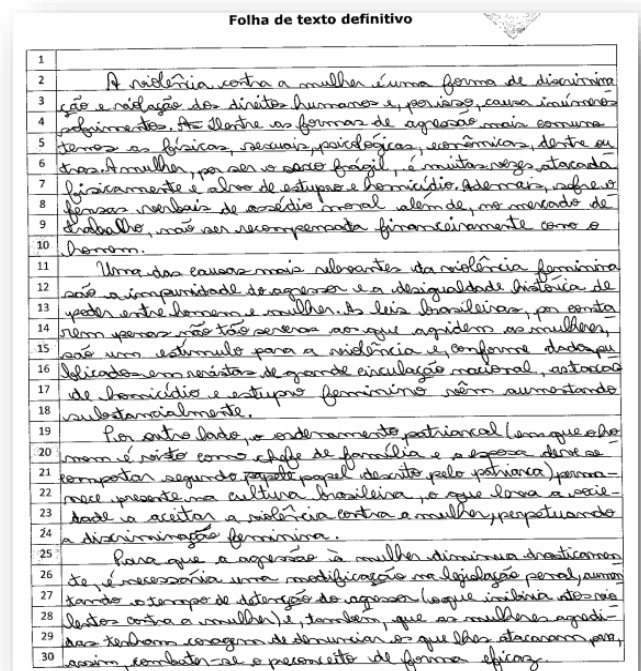 Folha de texto definitivo
1
2 A violência contra a mulher é uma forma de discrimina
3 ção e violação dos direitos humanos e, por isso, causa inúmeros
4 sofrimentos. As dentre as formas de agressão mais comuns
5 temos as físicas, sexuais, psicológicas, econômicas, dentre ou
6 tras. A mulher, por ser o sexo frágil, é muitas vezes atacada
7 fisicamente e alvo de estupro e homicídio. Ademais, sofre o
8 fensas verbais de assédio moral além de, no mercado de
9 trabalho, não ser recompensada financeiramente como o
10 homem.
11 Uma das causas mais relevantes da violência feminina
12 são a impunidade do agressor e a desigualdade histórica de
13 poder entre homem e mulher. As leis brasileiras, por consta
14 rem penas não tão severas aos que agridem as mulheres,
15 são um estímulo para a violência e, conforme dados pu
16 blicados em revistas de grande circulação nacional, as taxas
17 de homicídio e estupro feminino vêm aumentando
18 substancialmente.
19 Por outro lado, o ordenamento patriarcal (em que o ho
20 mem é visto como chefe de família e a esposa deve se
21 comportar segundo papele papel descrito pelo patriarca) perma-
22 nece presente na cultura brasileira, o que leva a socie-
23 dade a aceitar a violência contra a mulher, perpetuando
24 a discriminação feminina.
25 Para que a agressão à mulher diminua drasticamen
26 te, é necessária uma modificação na legislação penal, aumen
27 tando o tempo de detenção do agressor (o que inibiria atos vio
28 lentos contra a mulher) e, também, que as mulheres agredi-
29 das tenham coragem de denunciar os que lhes atacaram para,
30 assim, combater-se o preconceito de forma eficaz.